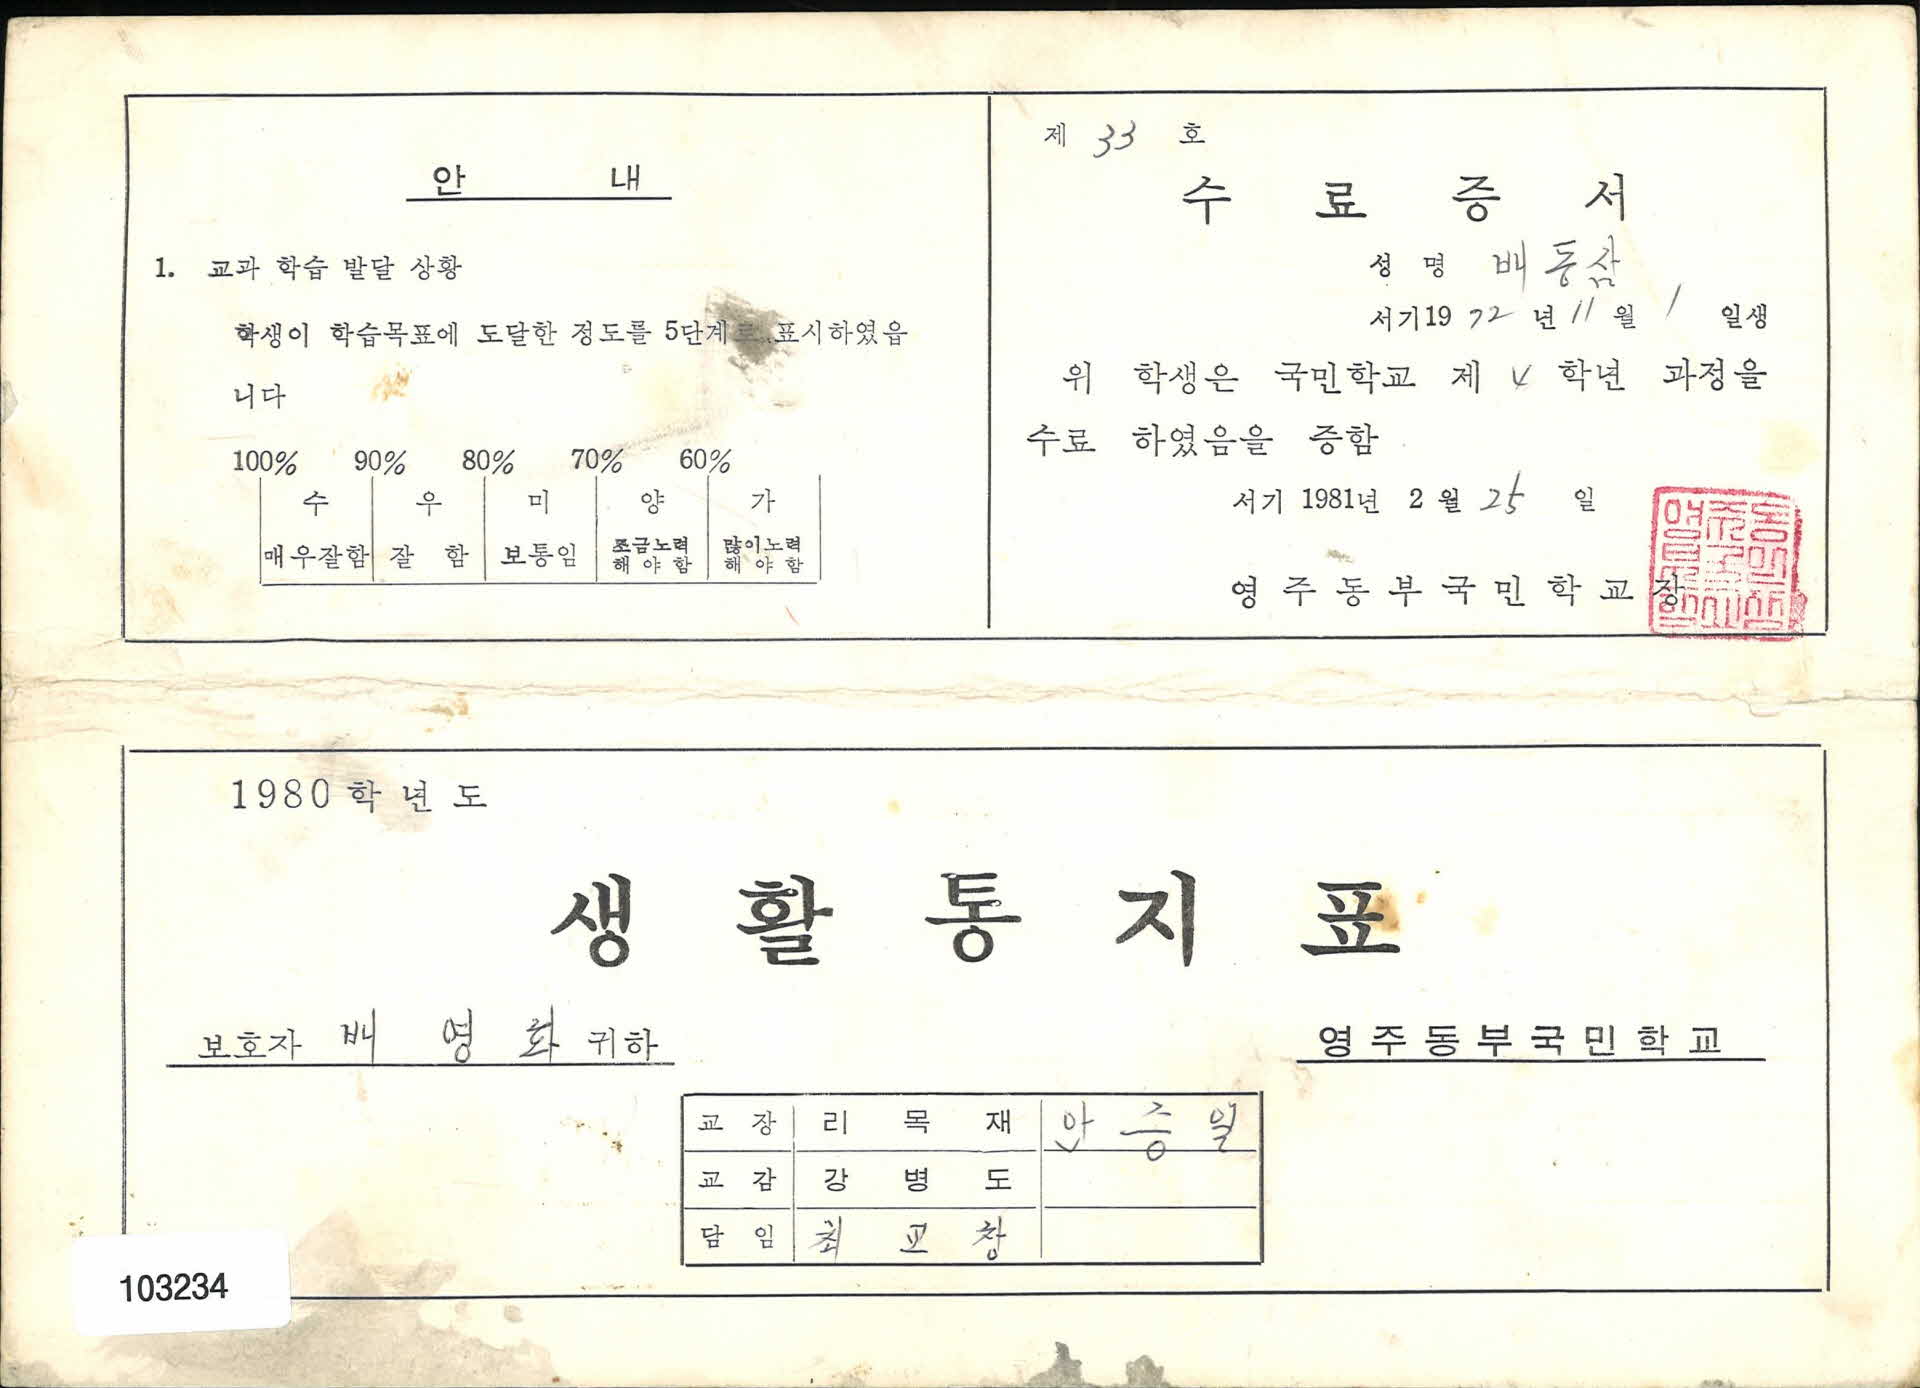 안 내
1. 교과 학습 발달 상황
학생이 학습목표에 도달한 정도를 5단계로 표시하였읍
니다
100% 90% 80% 70% 60%
수 우 미 양 가
매우잘함 잘 함 보통임 조금노력 해야함 많이노력 해야함
제 33 호
수 료 증 서
성 명 배동삼
서기1972년 11월 1일생
위 학생은 국민학교 제 4 학년 과정을
수료 하였음을 증함
서기 1981년 2월 25일
영주동부국민학교장
1980학년도
생 활 통 지 표
보호자 배 영 화 귀하
영주동부국민학교
교 장 리 목 재 안 증 일
교 감 강 병 도
담 임 최 교 창
103234